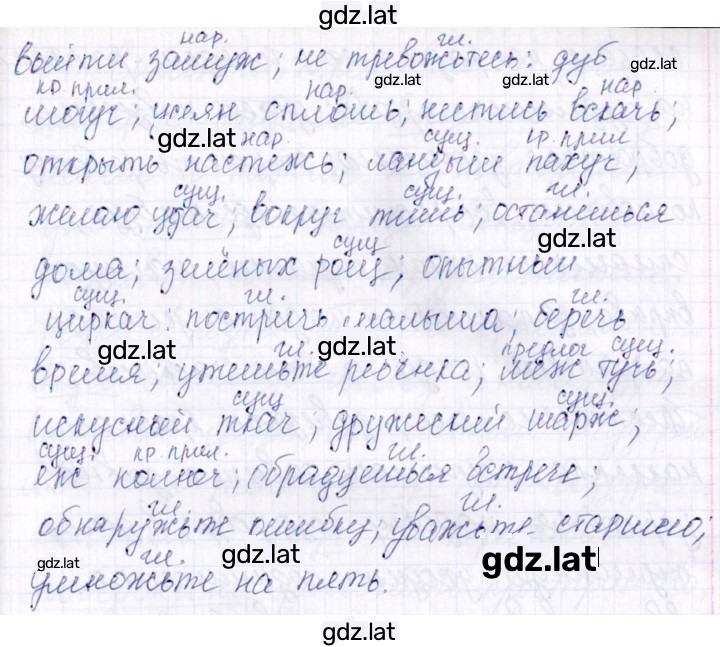 gdz.lat
нар. гл.
выйти замуж; не тревожьтесь; дуб
gdz.lat gdz.lat gdz.lat
кр. прил. нар. нар
могуч; сплошь; нестись вскачь;
gdz.lat нар сущ. кр. прил
открыть настежь; ландыш пахуч;
сущ. сущ. гл.
желаю удач; вокруг тишь; останешься
сущ gdz.lat
дома; зелёных рощ; опытный
сущ. гл. гл.
циркач; постричь малыша; беречь
gdz.lat гл. gdz.lat предлог сущ.
время; утешьте ребёнка; меж туч;
сущ сущ.
искусный ткач; дружеский шарж;
сущ. кр. прил. гл.
ёж колюч; обрадуешься встрече;
гл. гл.
обнаружьте ошибку; уважьте старшего;
gdz.lat гл. gdz.lat gdz.lat
умножьте на пять.
gdz.lat